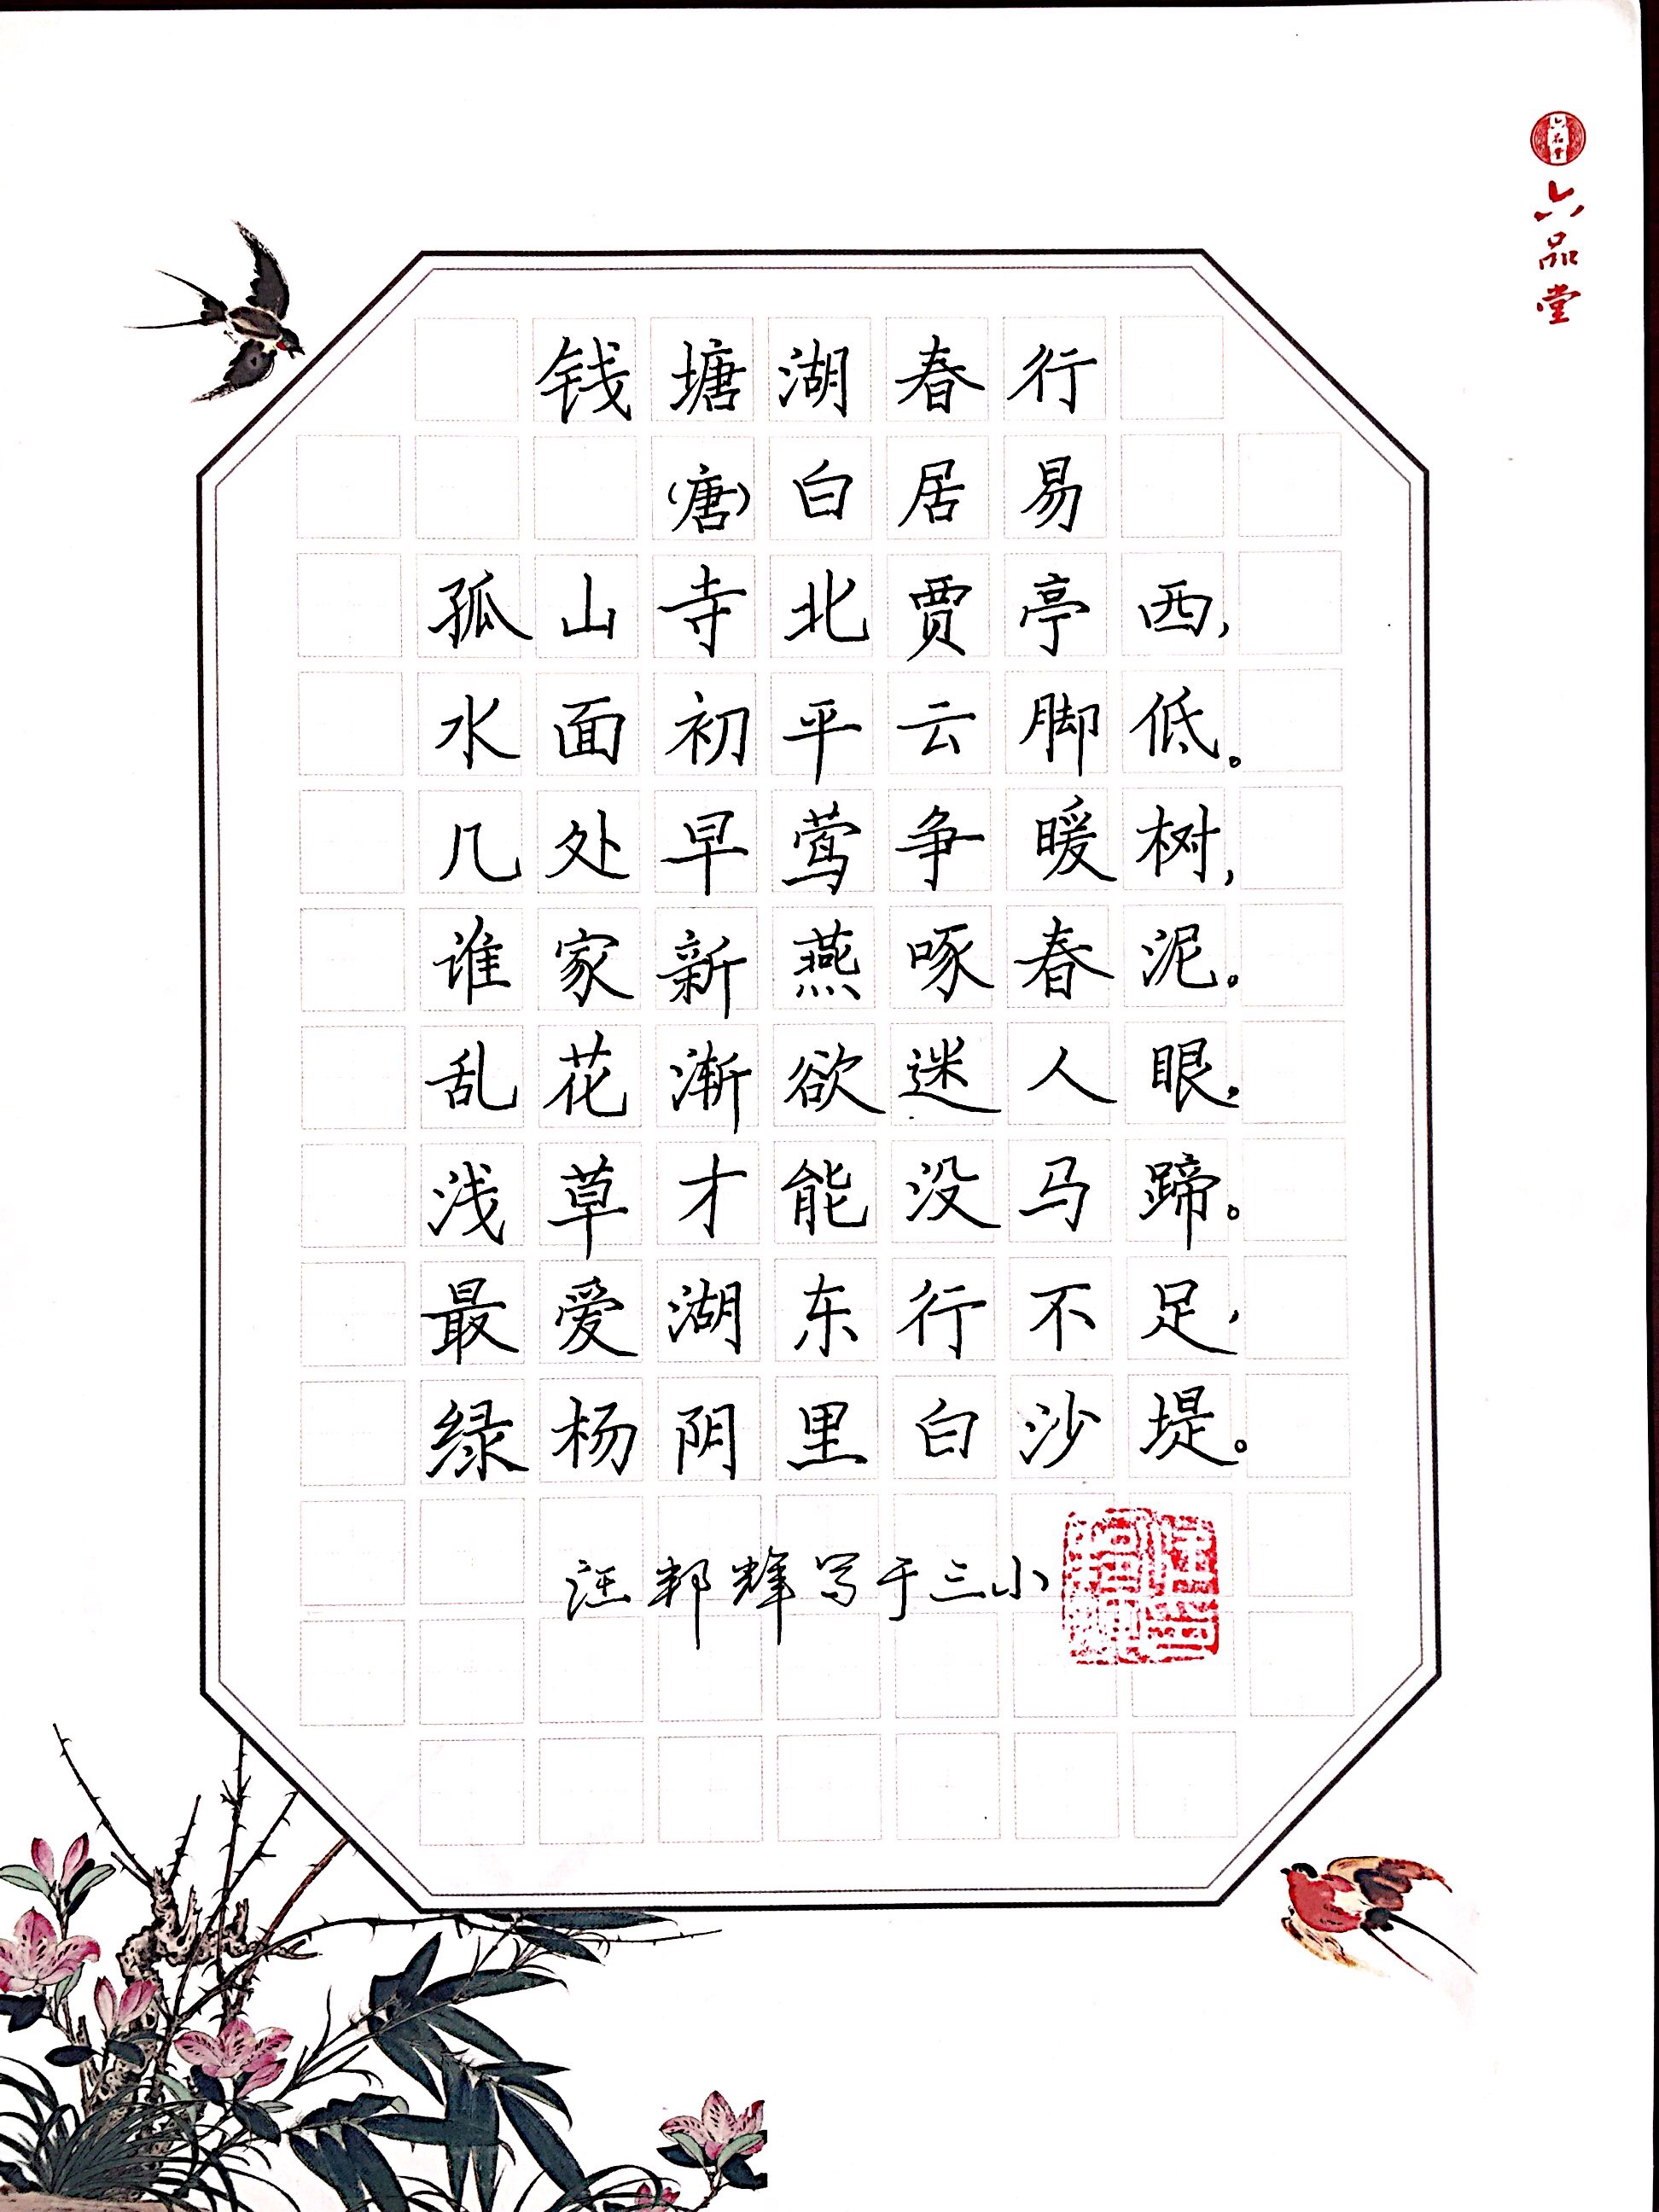 六品堂
钱塘湖春行
(唐)白居易
孤山寺北贾亭西,
水面初平云脚低。
几处早莺争暖树,
谁家新燕啄春泥。
乱花渐欲迷人眼,
浅草才能没马蹄。
最爱湖东行不足,
绿杨阴里白沙堤。
汪邦辉写于三小